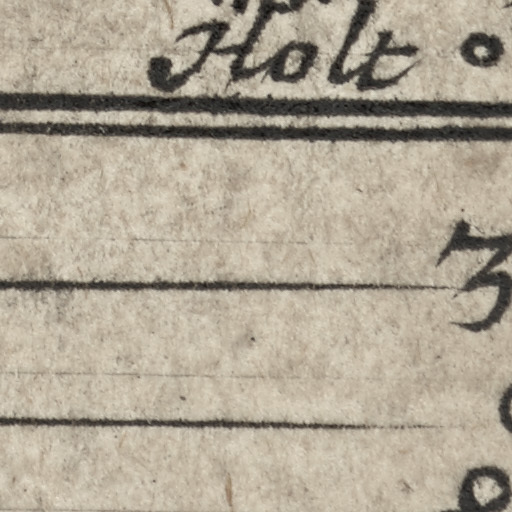 Holt
3
8